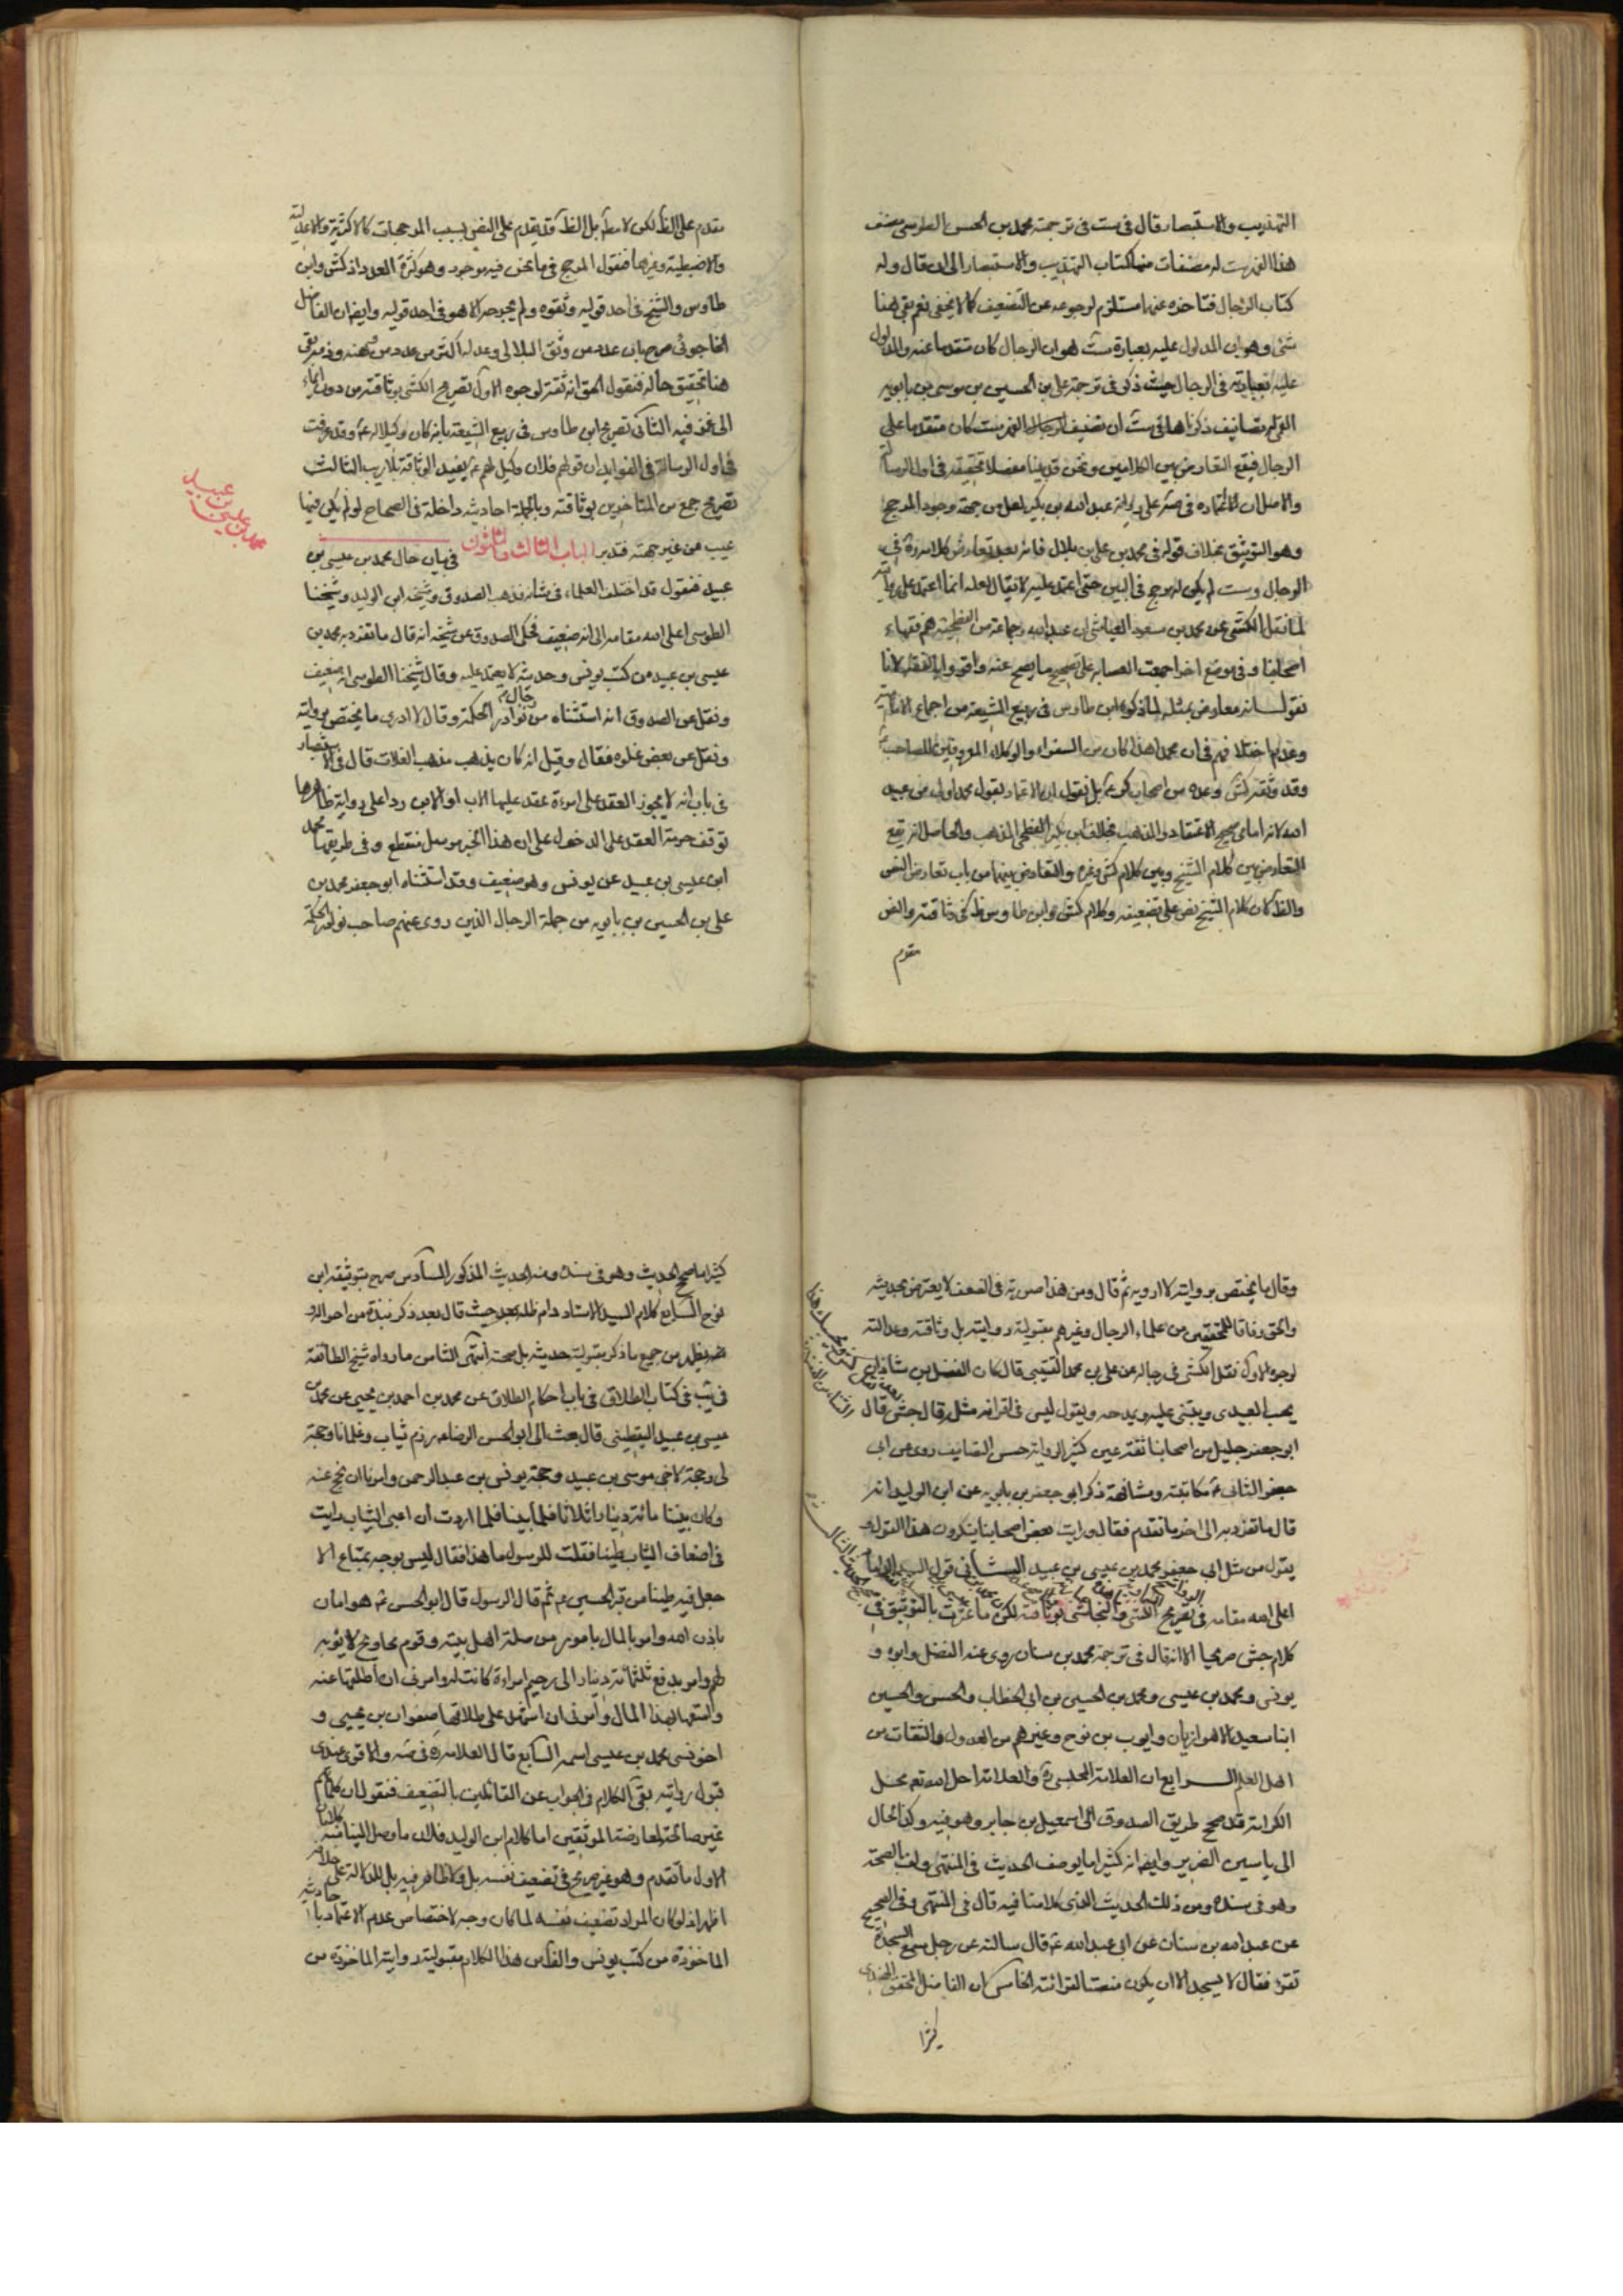 التهذيب والاستبصار قال في ست في ترجمة محمد بن الحسن الطوسي مصنف
هذا الفهرست له مصنفات منها كتاب التهذيب والاستبصار الى ان قال وله
كتاب الرجال فتاخره عنهما مستلزم لرجوعه عن التضعيف كما لا يخفى نعم بقي هنا
شئ وهو ان المدلول عليه بعبارة ست هو ان الرجال كان متقدما عنه والمدلول
عليه بعبارته في الرجال حيث ذكر في ترجمة علي بن الحسين بن موسى بن بابويه
القمي له تصانيف ذكرناها في ست ان تصنيف الفهرست كان متقدما على
الرجال فيقع التعارض بين الكلامين ونحن قد بينا مفصلا تحقيقه في اول الرسالة
والاصل ان اعتماده في صه على رواية عبد الله بن بكير لعل من جهة وجود المرجح
وهو التوثيق بخلاف قوله في محمد بن علي بن بلال فانه بعد تعارض كلامه ره في
الرجال وست لم يكن له مرجح في البين حتى اعتمد عليه لا يقال لعله انما اعتمد على روايته
لما نقل الكشي عن محمد بن مسعود العياشي ان عبد الله وجماعة من الفطحية هم فقهاء
اصحابنا وفي موضع اخر اجمعت العصابه على تصحيح ما يصح عنه واقروا له بالفقه لانا
نقول انه معارض بمثله لما ذكره ابن طاوس في ربيع الشيعة من اجماع الامامية
وعدم اختلافهم في ان محمدا هذا كان من السفراء والوكلاء المعروفين للصاحب
وقد وثقه كش وعده من اصحاب كر ع بل نقول ان الاعتماد بقول محمد اولى من عبد
الله لانه امامي صحيح الاعتقاد والمذهب بخلاف ابن بكير الفطحي المذهب والحاصل انه يقع
التعارض بين كلام الشيخ وبين كلام كش وغيره والتعارض بينهما من باب تعارض النص
والظ كان كلام الشيخ نص على تضعيفه وكلام كش وابن طاوس ظ في وثاقته والنص
مقدم
مقدم على الظ لكن لا مط بل الظ قد يقدم على النص بسبب المرجحات كالاكثرية والاعدلية
والاضبطية وغيرها فنقول المرجح في ما نحن فيه موجود وهو كثرة العدد اذ كش وابن
طاوس والشيخ في احد قوليه وثقوه ولم يجرحه الا هو في احد قوليه وايضا ان الفاضل
الخاجوئي صرح بان عدد من وثق البلالي وعدله اكثر من عدد من وهنه وذمه بقي
هنا تحقيق حاله فنقول الحق انه ثقة لوجوه الاول تصريح الكشي بوثاقته من دون ايماء
الى غمز فيه الثاني تصريح ابن طاوس في ربيع الشيعة بانه كان وكيلا له ع وقد عرفت
في اول الرسالة في الفوايد ان قولهم فلان وكيل لهم ع يفيد الوثاقة بلا ريب الثالث
تصريح جمع من المتاخرين بوثاقته وبالجملة احاديثه داخلة في الصحاح لو لم يكن فيها
عيب من غير جهته فتدبر الباب الثالث والثلثون في بيان حال محمد بن عيسى بن
عبيد فنقول قد اختلف العلماء في شانه فذهب الصدوق وشيخه ابن الوليد وشيخنا
الطوسي اعلى الله مقامه الى انه ضعيف فحكى الصدوق عن شيخه انه قال ما تفرد به محمد بن
عيسى بن عبيد من كتب يونس وحديثه لا يعتمد عليه وقال شيخنا الطوسي انه ضعيف
ونقل عن الصدوق انه استثناه من رجال نوادر الحكمة وقال لا اروي ما يختص بروايته
ونقل عن بعض غلوه فقال وقيل انه كان يذهب مذهب الغلات قال في الاستبصار
في باب انه لا يجوز العقد على امرءة عقد عليها الاب او الابن ردا على رواية ظاهرها
توقف حرمة العقد على الدخول على ان هذا الخبر مرسل منقطع وفي طريقها محمد
ابن عيسى بن عبيد عن يونس وهو ضعيف وقد استثناه ابو جعفر محمد بن
علي بن الحسين بن بابويه من جملة الرجال الذين روى عنهم صاحب نوادر الحكمة
محمد بن عيسى بن عبيد
وقال ما يختص بروايته لا ارويه ثم قال ومن هذا صورته في الضعف لا يعترض بحديثه
والحق وفاقا للمحققين من علماء الرجال وغيرهم مقبولية روايته بل وثاقته وعدالته
لوجوه الاول نقل الكشي في رجاله عن علي بن محمد القتيبي قال كان الفضل بن شاذان
يحب العبيدي ويثني عليه ويمدحه ويقول ليس في اقرانه مثله وقال جش قال
ابو جعفر جليل من اصحابنا ثقة عين كثير الرواية حسن التصانيف روى عن ابي
جعفر الثاني ع مكاتبة ومشافهة ذكر ابو جعفر بن بابويه عن ابن الوليد انه
قال ما تفرد به الى اخر ما تقدم فقال ورايت بعض اصحابنا ينكرون هذا القول و
يقول من مثل ابي جعفر محمد بن عيسى بن عبيد الثاني قول السيد الداماد
اعلى الله مقامه في تصريح الكشي والنجاشي بوثاقته لكن ما عثرت بالتوثيق في
كلام جش صريحا الا انه قال في ترجمة محمد بن سنان روى عنه الفضل وابوه و
يونس ومحمد بن عيسى ومحمد بن الحسين بن ابي الخطاب والحسن والحسين
ابنا سعيد الاهوازيان وايوب بن نوح وغيرهم من العدول والثقات من
اهل العلم الرابع ان العلامة المجلسي ره والعلامة احل الله تع محل
الكرامة قد صحح طريق الصدوق الى اسمعيل بن جابر وهو فيه وكذا الحال
الى ياسين الضرير وايضا انه كثيرا ما يوصف الحديث في المنتهى ولف بالصحة
وهو في سنده ومن ذلك الحديث الذي كلامنا فيه قال في المنتهى وفي الصحيح
عن عبد الله بن سنان عن ابي عبد الله ع قال سالته عن رجل سمع السجدة
تقرء فقال لا يسجد الا ان يكون منصتا لقرائته الخامس ان الفاضل المحقق
كثيرا
كثيرا ما صحح الحديث وهو في سنده ومنه الحديث المذكور السادس صرح بتوثيقه ابن
نوح السابع كلام السيد الاستاد دام ظله حيث قال بعد ذكر نبذة من احواله و
قد يظهر من جميع ما ذكر مقبولية حديثه بل صحته انتهى الثامن ما رواه شيخ الطائفة
في يب في كتاب الطلاق في باب احكام الطلاق عن محمد بن احمد بن يحيى عن محمد بن
عيسى بن عبيد اليقطيني قال بعث الى ابو الحسن الرضا ع رزم ثياب وغلمانا وحجة
لي وحجة لاخي موسى بن عبيد وحجة يونس بن عبد الرحمن وامرنا ان نحج عنه
وكان بيننا مائة دينار اثلاثا فيما بيننا فلما اردت ان اعبي الثياب رايت
في اضعاف الثياب طينا فقلت للرسول ما هذا فقال ليس يوجه بمتاع الا
جعل فيه طينا من قبر الحسين ع ثم قال الرسول قال ابو الحسن ع هو امان
باذن الله وامر بالمال بامور من صلة اهل بيته وقوم محاويج لا يؤبه
لهم وامر بدفع ثلثمائة دينار الى رحيم امراءة كانت له وامرني ان اطلقها عنه
وامتعها بهذا المال وامرني ان اشهد على طلاقها صفوان بن يحيى و
اخر نسي محمد بن عيسى اسمه السابع قال العلامة ره في صه والاقوى عندي
قبول روايته بقي الكلام في الجواب عن القائلين بالتضعيف فنقول ان كلماتهم
غير صالحة لمعارضة الموثقين اما كلام ابن الوليد فلان ما وصل الينا منه كلامان
الاول ما تقدم وهو غير صريح في تضعيف نفسه بل ولا ظاهر فيه بل الدلالة على خلافه
اظهر اذ لو كان المراد تضعيف نفسه لما كان وجه لاختصاص عدم الاعتماد باحاديثه
الماخوذة من كتب يونس والظ من هذا الكلام مقبولية روايته الماخوذة من